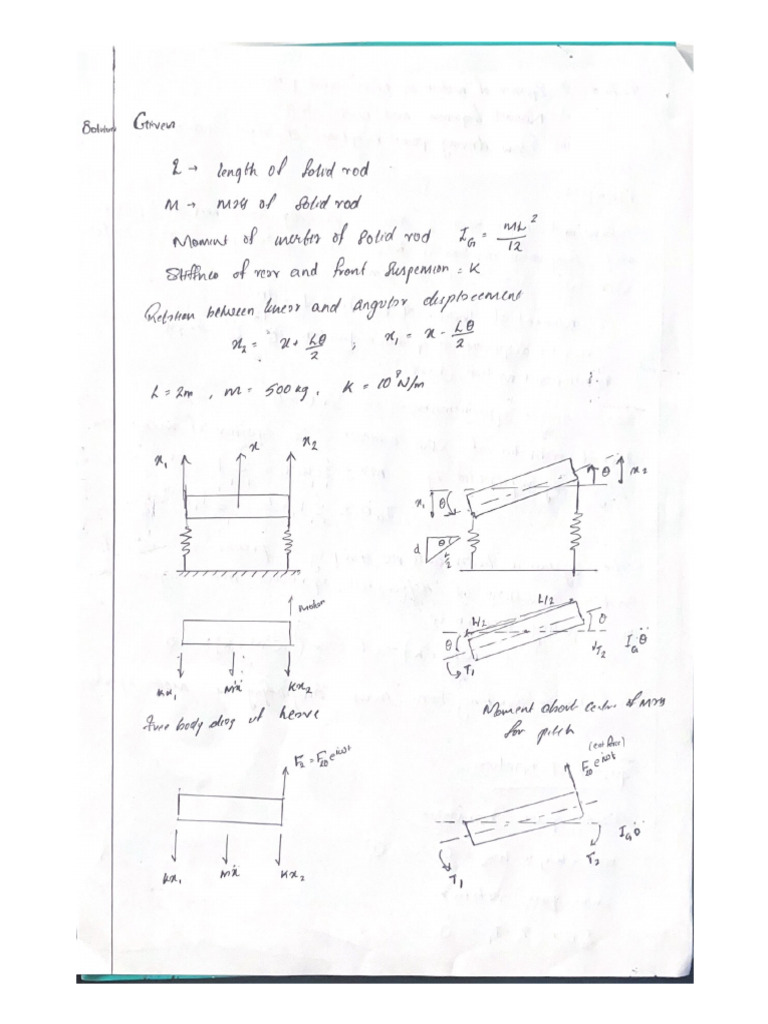 Solution Given
L → length of solid rod
M → mass of solid rod
Moment of inertia of solid rod I_G = ML²/12
Stiffness of rear and front suspension = K
Relation between linear and angular displacement
x₂ = x + Lθ/2 ; x₁ = x - Lθ/2
L = 2m , m = 500 kg , K = 10⁸ N/m
x₁ x x₂
x₁ θ θ x₂
d θ L/2
motor
kx₁ mẍ kx₂
L/2 L/2
θ θ T₁ T₂ I_G θ̈
Free body diag of heave
Moment about centre of mass
for pitch
F₂ = F₂₀ e^{iωt}
kx₁ mẍ kx₂
(ext force)
F₂₀ e^{iωt}
T₁ T₂ I_G θ̈